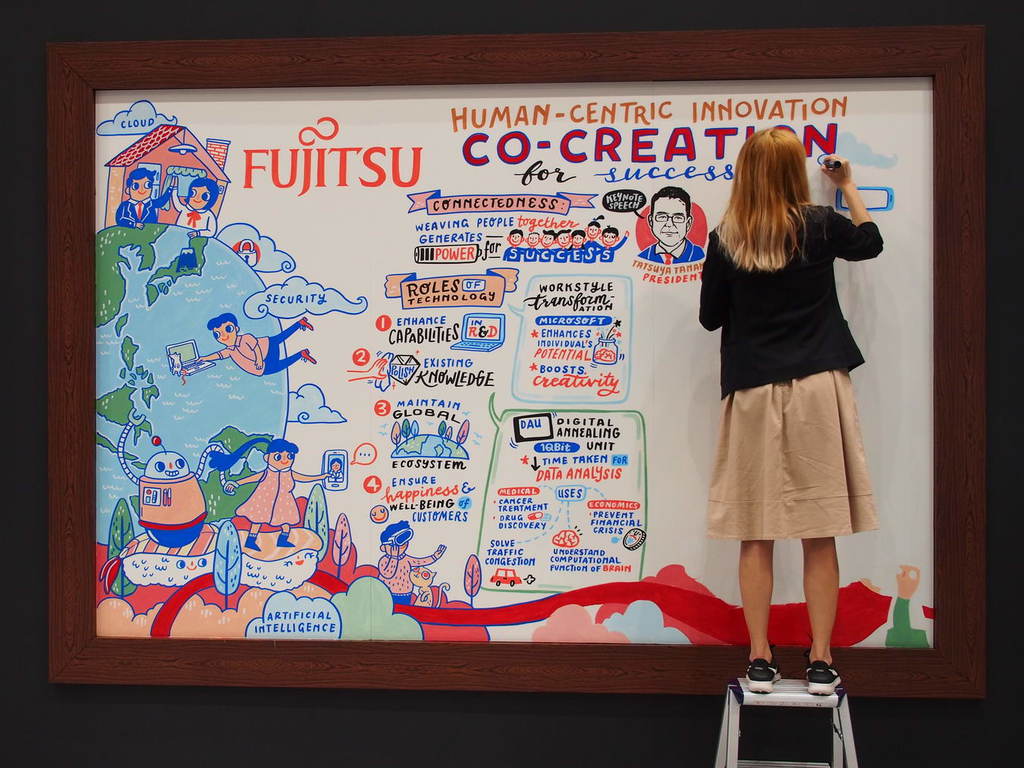 CLOUD
FUJITSU
HUMAN-CENTRIC INNOVATION
CO-CREATION
for success
CONNECTEDNESS:
WEAVING PEOPLE together
GENERATES
POWER for
SUCCESS
KEYNOTE
SPEECH
TATSUYA
PRESIDENT
SECURITY
ROLES OF
TECHNOLOGY
1 ENHANCE
CAPABILITIES IN
R&D
2 POLISH EXISTING
KNOWLEDGE
3 MAINTAIN
GLOBAL
ECOSYSTEM
4 ENSURE
happiness &
WELL-BEING of
CUSTOMERS
WORKSTYLE
transform-
ATION
MICROSOFT
* ENHANCES
INDIVIDUAL'S
POTENTIAL
* BOOSTS
creativity
DAU DIGITAL
ANNEALING
UNIT
1QBit
* ↓ TIME TAKEN FOR
DATA ANALYSIS
USES
MEDICAL
• CANCER
TREATMENT
• DRUG
DISCOVERY
ECONOMICS
• PREVENT
FINANCIAL
CRISIS
SOLVE
TRAFFIC
CONGESTION
UNDERSTAND
COMPUTATIONAL
FUNCTION OF BRAIN
ARTIFICIAL
INTELLIGENCE